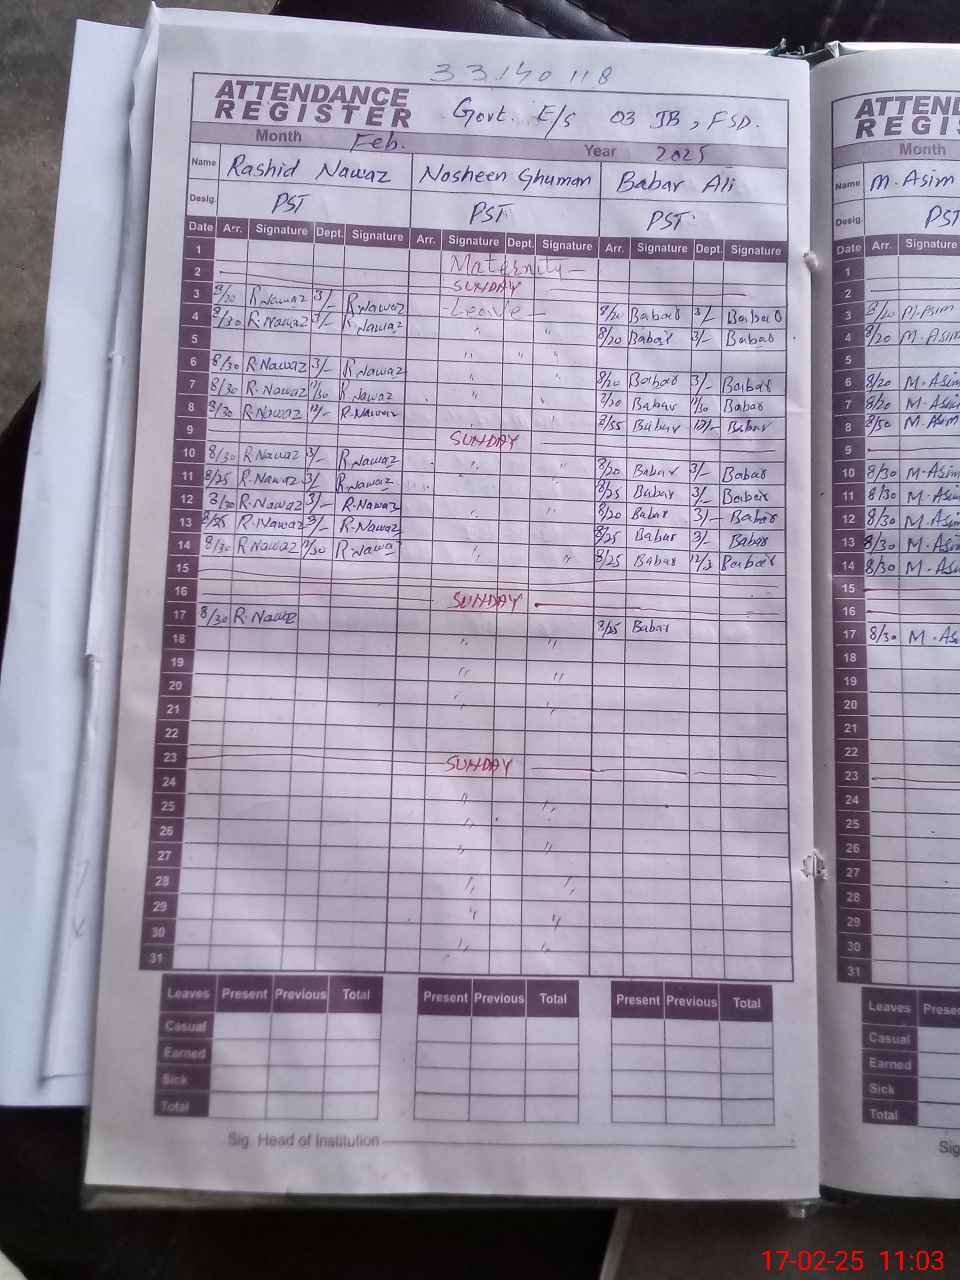 33140118
ATTENDANCE REGISTER Govt. E/S 03 JB, FSD.
Month Feb. Year 2025
Name Rashid Nawaz Nosheen Ghuman Babar Ali
Desig. PST PST PST
Date Arr. Signature Dept. Signature Arr. Signature Dept. Signature Arr. Signature Dept. Signature
1 Maternity
2 SUNDAY
3 8/20 R.Nawaz 3/- R.Nawaz Leave 8/20 Babar 3/- Babar
4 8/30 R.Nawaz 3/- R.Nawaz " 8/20 Babar 3/- Babar
5 " " "
6 8/30 R.Nawaz 3/- R.Nawaz " " 8/20 Babar 3/- Babar
7 8/30 R.Nawaz R.Nawaz " " Babar Babar
8 8/30 R.Nawaz 12/- R.Nawaz Babar 12/- Babar
9 SUNDAY
10 8/30 R.Nawaz 3/- R.Nawaz " " 8/20 Babar 3/- Babar
11 8/25 R.Nawaz 3/- R.Nawaz " " 8/25 Babar 3/- Babar
12 8/30 R.Nawaz 3/- R.Nawaz " " 8/20 Babar 3/- Babar
13 8/25 R.Nawaz 3/- R.Nawaz 8/25 Babar 3/- Babar
14 8/30 R.Nawaz R.Nawaz " " 8/25 Babar Babar
15
16 SUNDAY
17 8/30 R.Nawaz 8/25 Babar
18 " "
19 " "
20 " "
21
22
23 SUNDAY
24 " "
25 " "
26 " "
27 " "
28 " "
29 " "
30
31
Leaves Present Previous Total Present Previous Total Present Previous Total
Casual
Earned
Sick
Total
Sig. Head of Institution
ATTEN
REGIS
Month
Name M. Asim
Desig. PST
Date Arr. Signature
1
2
3 8/20 M. Asim
4 8/20 M. Asim
5
6 8/20 M. Asim
7 8/20 M. Asim
8 8/50 M. Asim
9
10 8/30 M. Asim
11 8/30 M. Asim
12 8/30 M. Asim
13 8/30 M. Asim
14 8/30 M. Asim
15
16
17 8/30 M. Asi
18
19
20
21
22
23
24
25
26
27
28
29
30
31
Leaves Prese
Casual
Earned
Sick
Total
Sig
17-02-25 11:03